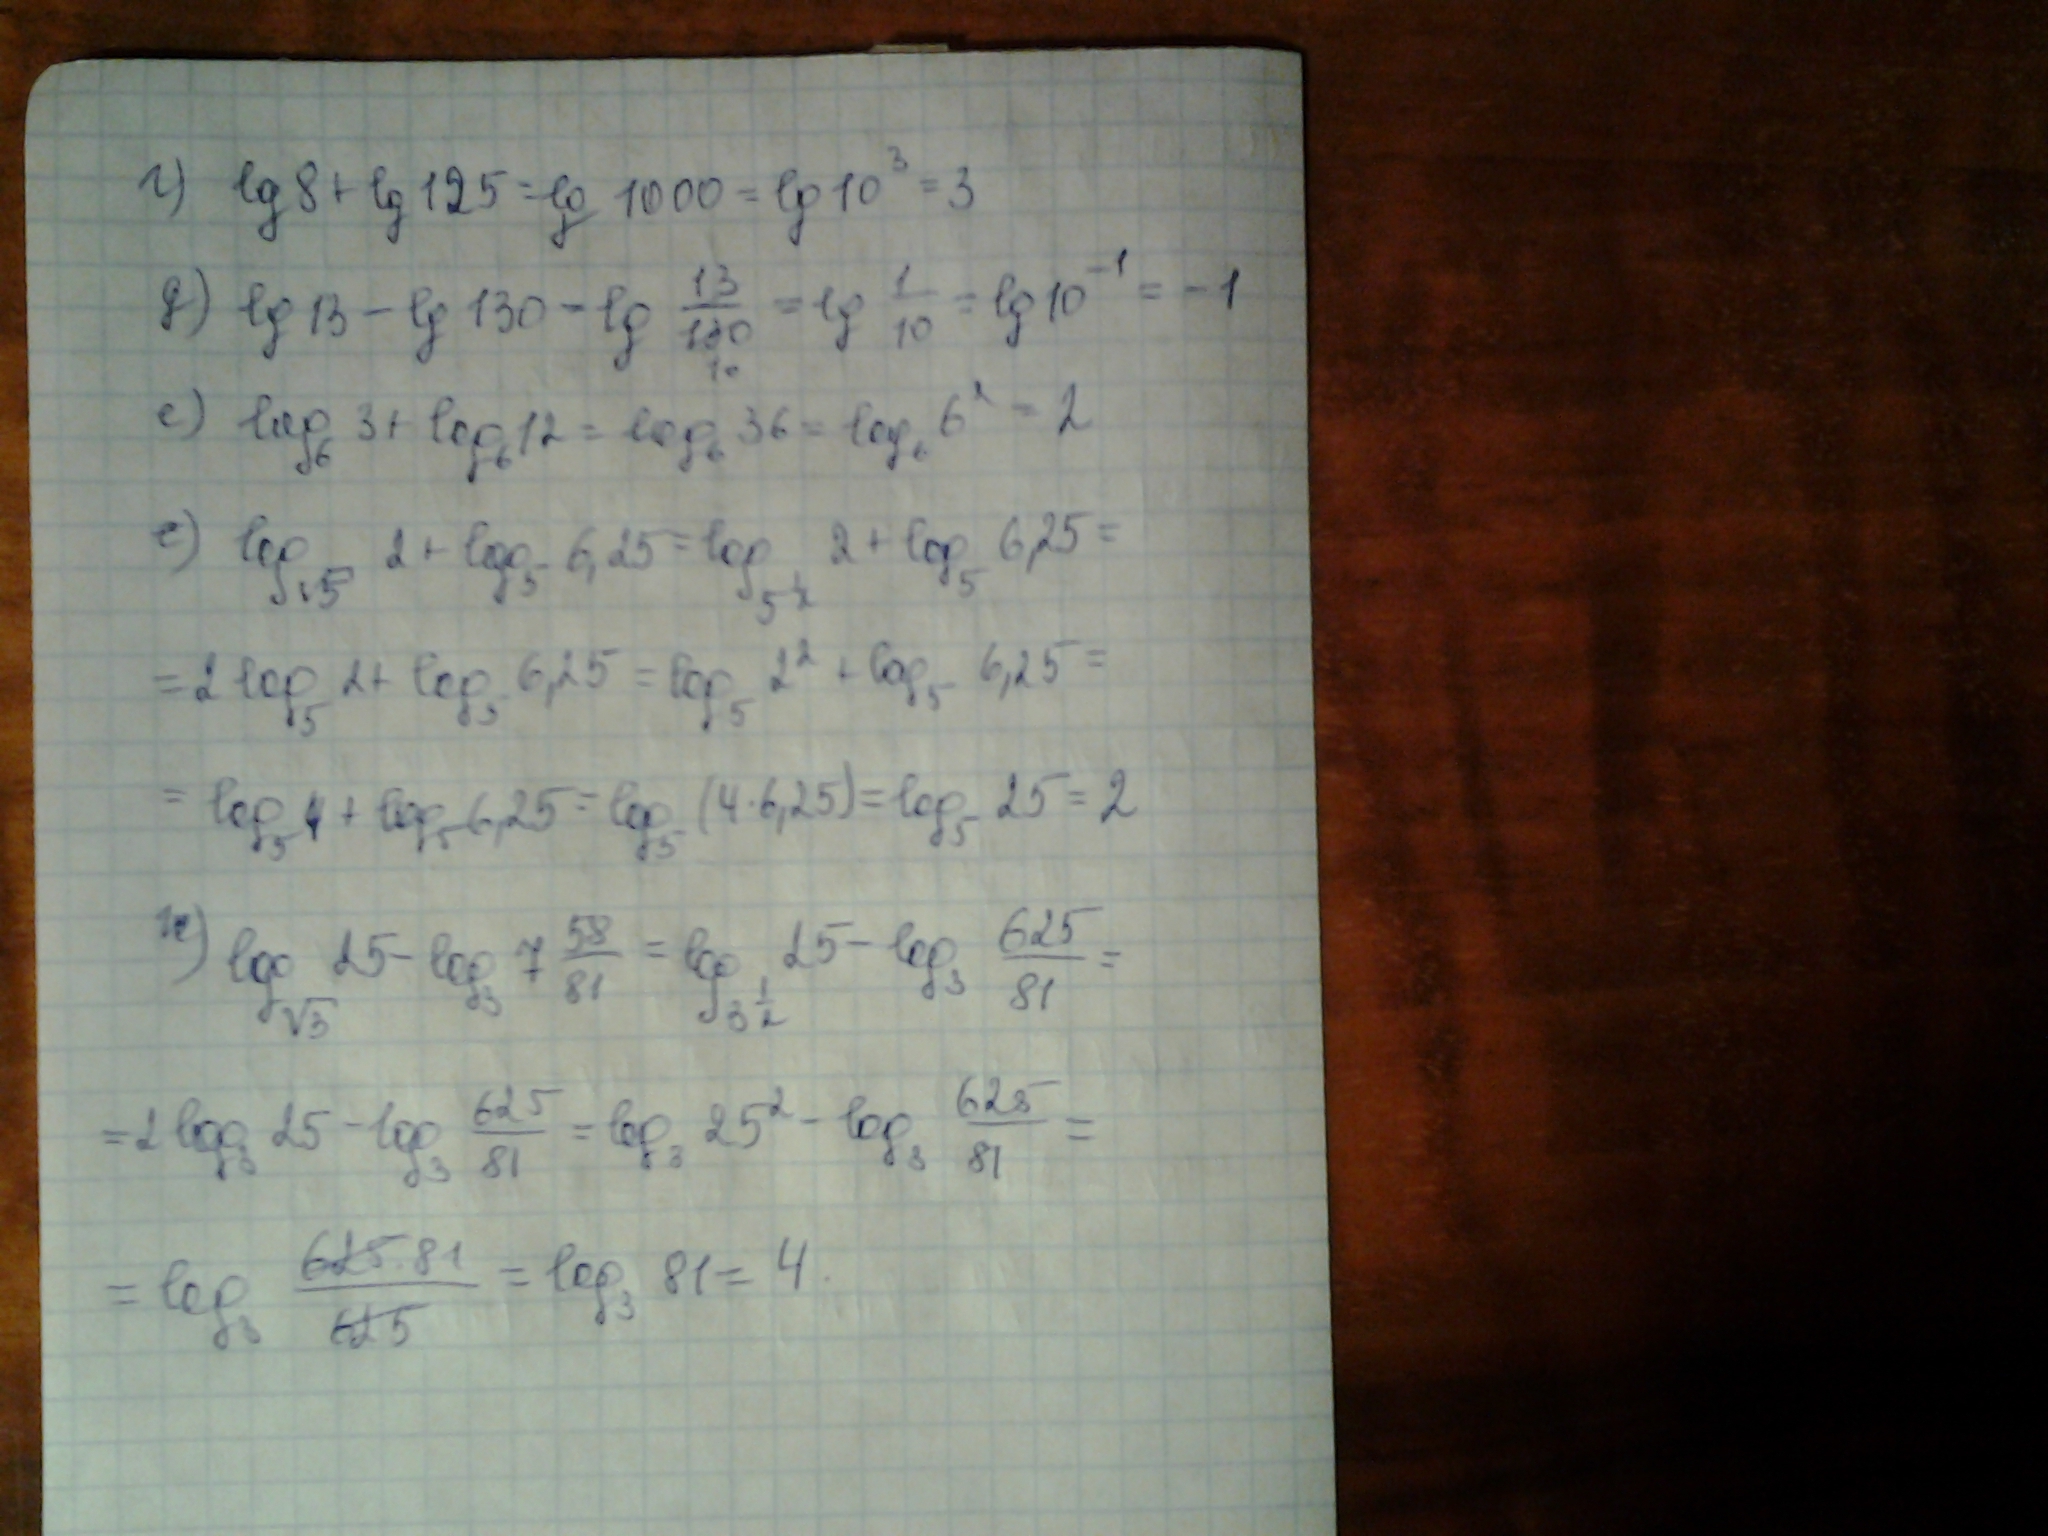 г) lg 8 + lg 125 = lg 1000 = lg 10³ = 3
д) lg 13 − lg 130 − lg 13/130 10 = lg 1/10 = lg 10⁻¹ = −1
е) log₆ 3 + log₆ 12 = log₆ 36 = log₆ 6² = 2
е) log_√5 2 + log₅ 6,25 = log_5^(1/2) 2 + log₅ 6,25 =
= 2 log₅ 2 + log₅ 6,25 = log₅ 2² + log₅ 6,25 =
= log₅ 4 + log₅ 6,25 = log₅ (4·6,25) = log₅ 25 = 2
ж) log_√3 25 − log₃ 7 58/81 = log_3^(1/2) 25 − log₃ 625/81 =
= 2 log₃ 25 − log₃ 625/81 = log₃ 25² − log₃ 625/81 =
= log₃ 625·81/625 = log₃ 81 = 4.